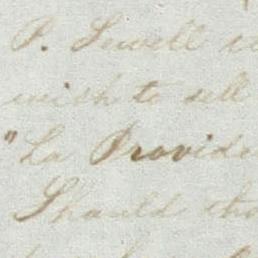 P. Sewell
wish to sell
"La Provide
Should tho